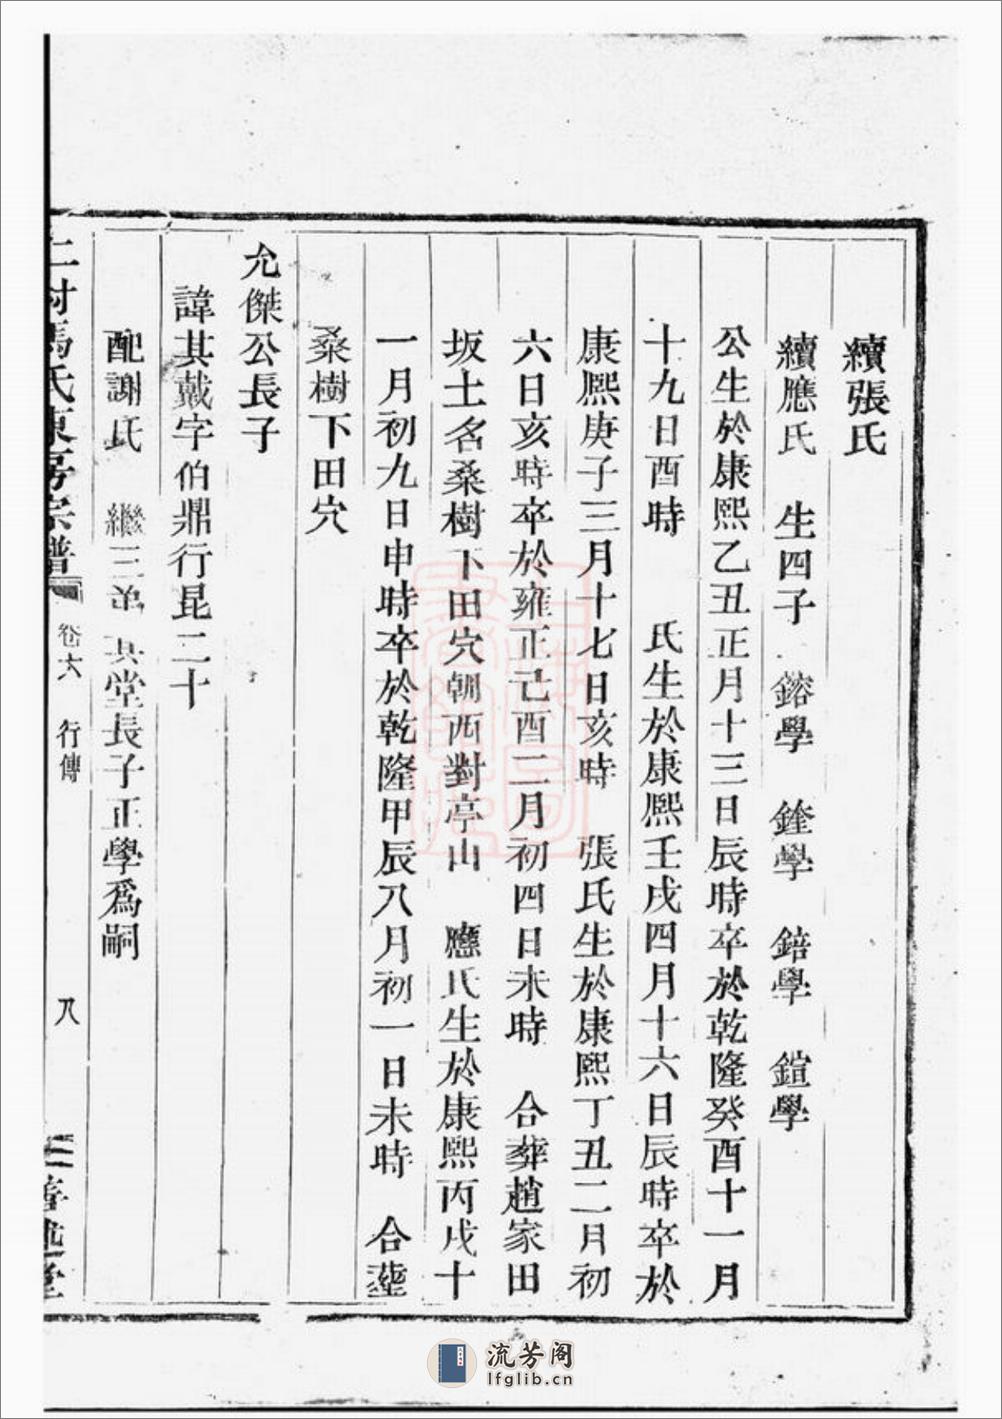 續張氏
續應氏 生四子 鎔學 鋒學 錇學 鍹學
公生於康熙乙丑正月十三日辰時卒於乾隆癸酉十一月
十九日酉時 氏生於康熙壬戌四月十六日辰時卒於
康熙庚子三月十七日亥時 張氏生於康熙丁丑二月初
六日亥時卒於雍正己酉二月初四日未時 合葬趙家田
坂土名桑樹下田穴朝西對亭山 應氏生於康熙丙戌十
一月初九日申時卒於乾隆甲辰八月初一日未時 合塟
桑樹下田穴
允傑公長子
諱其戴字伯鼎行昆二十
配謝氏 繼三弟其堂長子正學爲嗣
村馬氏東房宗譜 卷六 行傳 八 善述堂
流芳阁
lfglib.cn